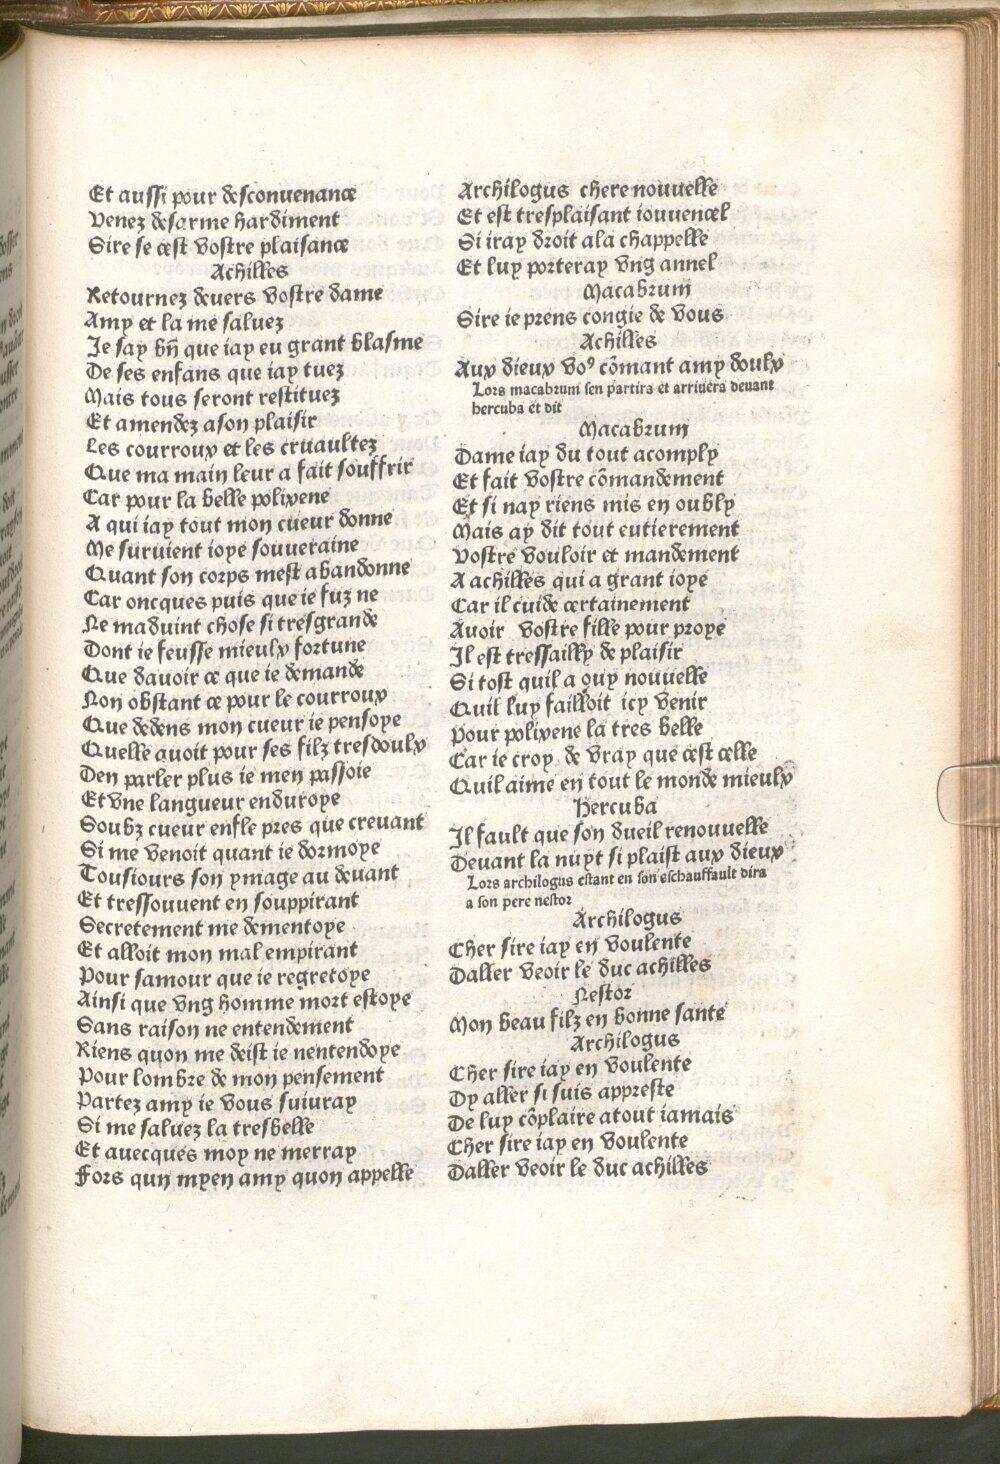 Et aussi pour desconuenance
Venez desarme hardiment
Sire se cest vostre plaisance
Achilles
Retournez deuers vostre dame
Amy et la me saluez
Je say bñ que iay eu grant blasme
De ses enfans que iay tuez
Mais tous seront restituez
Et amendez a son plaisir
Les courroux et les cruaultez
Que ma main leur a fait souffrir
Car pour la belle polixene
A qui iay tout mon cueur donne
Me suruient ioye souueraine
Quant son corps mest abandonne
Car oncques puis que ie fuz ne
Ne maduint chose si tresgrande
Dont ie feusse mieulx fortune
Que dauoir ce que ie demande
Non obstant ce pour le courroux
Que dedens mon cueur ie pensoye
Quelle auoit pour ses filz tresdoulx
Den parler plus ie men passoie
Et vne langueur enduroye
Soubz cueur enfle pres que creuant
Si me venoit quant ie dormoye
Tousiours son ymage au deuant
Et tressouuent en souppirant
Secretement me dementoye
Et alloit mon mal empirant
Pour samour que ie regretoye
Ainsi que vng homme mort estoye
Sans raison ne entendement
Riens quon me deist ie nentendoye
Pour lombre de mon pensement
Partez amy ie vous suiuray
Si me saluez la tresbelle
Et auecques moy ne merray
Fors qun myen amy quon appelle
Archilogus chere nouuelle
Et est tresplaisant iouuencel
Si iray droit ala chappelle
Et luy porteray vng annel
Macabrum
Sire ie prens congie de vous
Achilles
Aux dieux voꝰ cõmant amy doulx
Lors macabrum sen partira et arriuera deuant
hercuba et dit
Macabrum
Dame iay du tout acomply
Et fait vostre cõmandement
Et si nay riens mis en oubly
Mais ay dit tout eutierement
Vostre vouloir et mandement
A achilles qui a grant ioye
Car il cuide certainement
Auoir vostre fille pour proye
Il est tressailly de plaisir
Si tost quil a ouy nouuelle
Quil luy failloit icy venir
Pour polixene la tres belle
Car ie croy de vray que cest celle
Quil aime en tout le monde mieulx
Hercuba
Il fault que son dueil renouuelle
Deuant la nuyt si plaist aux dieux
Lors archilogus estant en son eschauffault dira
a son pere nestor
Archilogus
Cher sire iay en voulente
Daller veoir le duc achilles
Nestor
Mon beau filz en bonne sante
Archilogus
Cher sire iay en voulente
Dy aller si suis appreste
De luy cõplaire atout iamais
Cher sire iay en voulente
Daller veoir le duc achilles